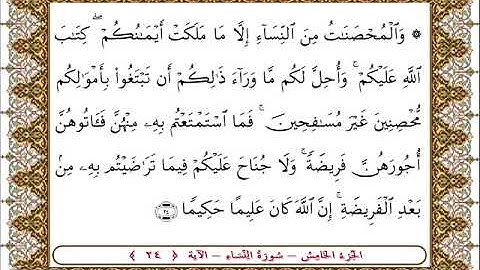 ۞ وَٱلْمُحْصَنَـٰتُ مِنَ ٱلنِّسَآءِ إِلَّا مَا مَلَكَتْ أَيْمَـٰنُكُمْ ۖ كِتَـٰبَ
ٱللَّهِ عَلَيْكُمْ ۚ وَأُحِلَّ لَكُم مَّا وَرَآءَ ذَٰلِكُمْ أَن تَبْتَغُوا۟ بِأَمْوَٰلِكُم
مُّحْصِنِينَ غَيْرَ مُسَـٰفِحِينَ ۚ فَمَا ٱسْتَمْتَعْتُم بِهِۦ مِنْهُنَّ فَـَٔاتُوهُنَّ
أُجُورَهُنَّ فَرِيضَةً ۚ وَلَا جُنَاحَ عَلَيْكُمْ فِيمَا تَرَٰضَيْتُم بِهِۦ مِنۢ
بَعْدِ ٱلْفَرِيضَةِ ۚ إِنَّ ٱللَّهَ كَانَ عَلِيمًا حَكِيمًا ﴿٢٤﴾
الجزء الخامس - سورة النساء - الآية ﴿ ٢٤ ﴾